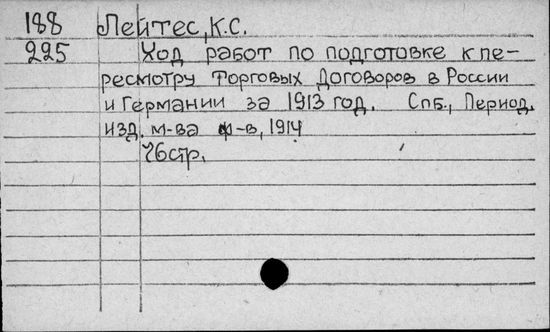 188 Лейтес, К.С.
225 Ход работ по подготовке к пе-
ресмотру Торговых Договоров в России
и Германии за 1913 год. Спб., Период.
изд. м-ва ф-в, 1914
76стр.